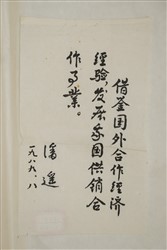 借鉴国外合作经济
经验，发展我国供销合
作事业。
潘遥
一九八九、八